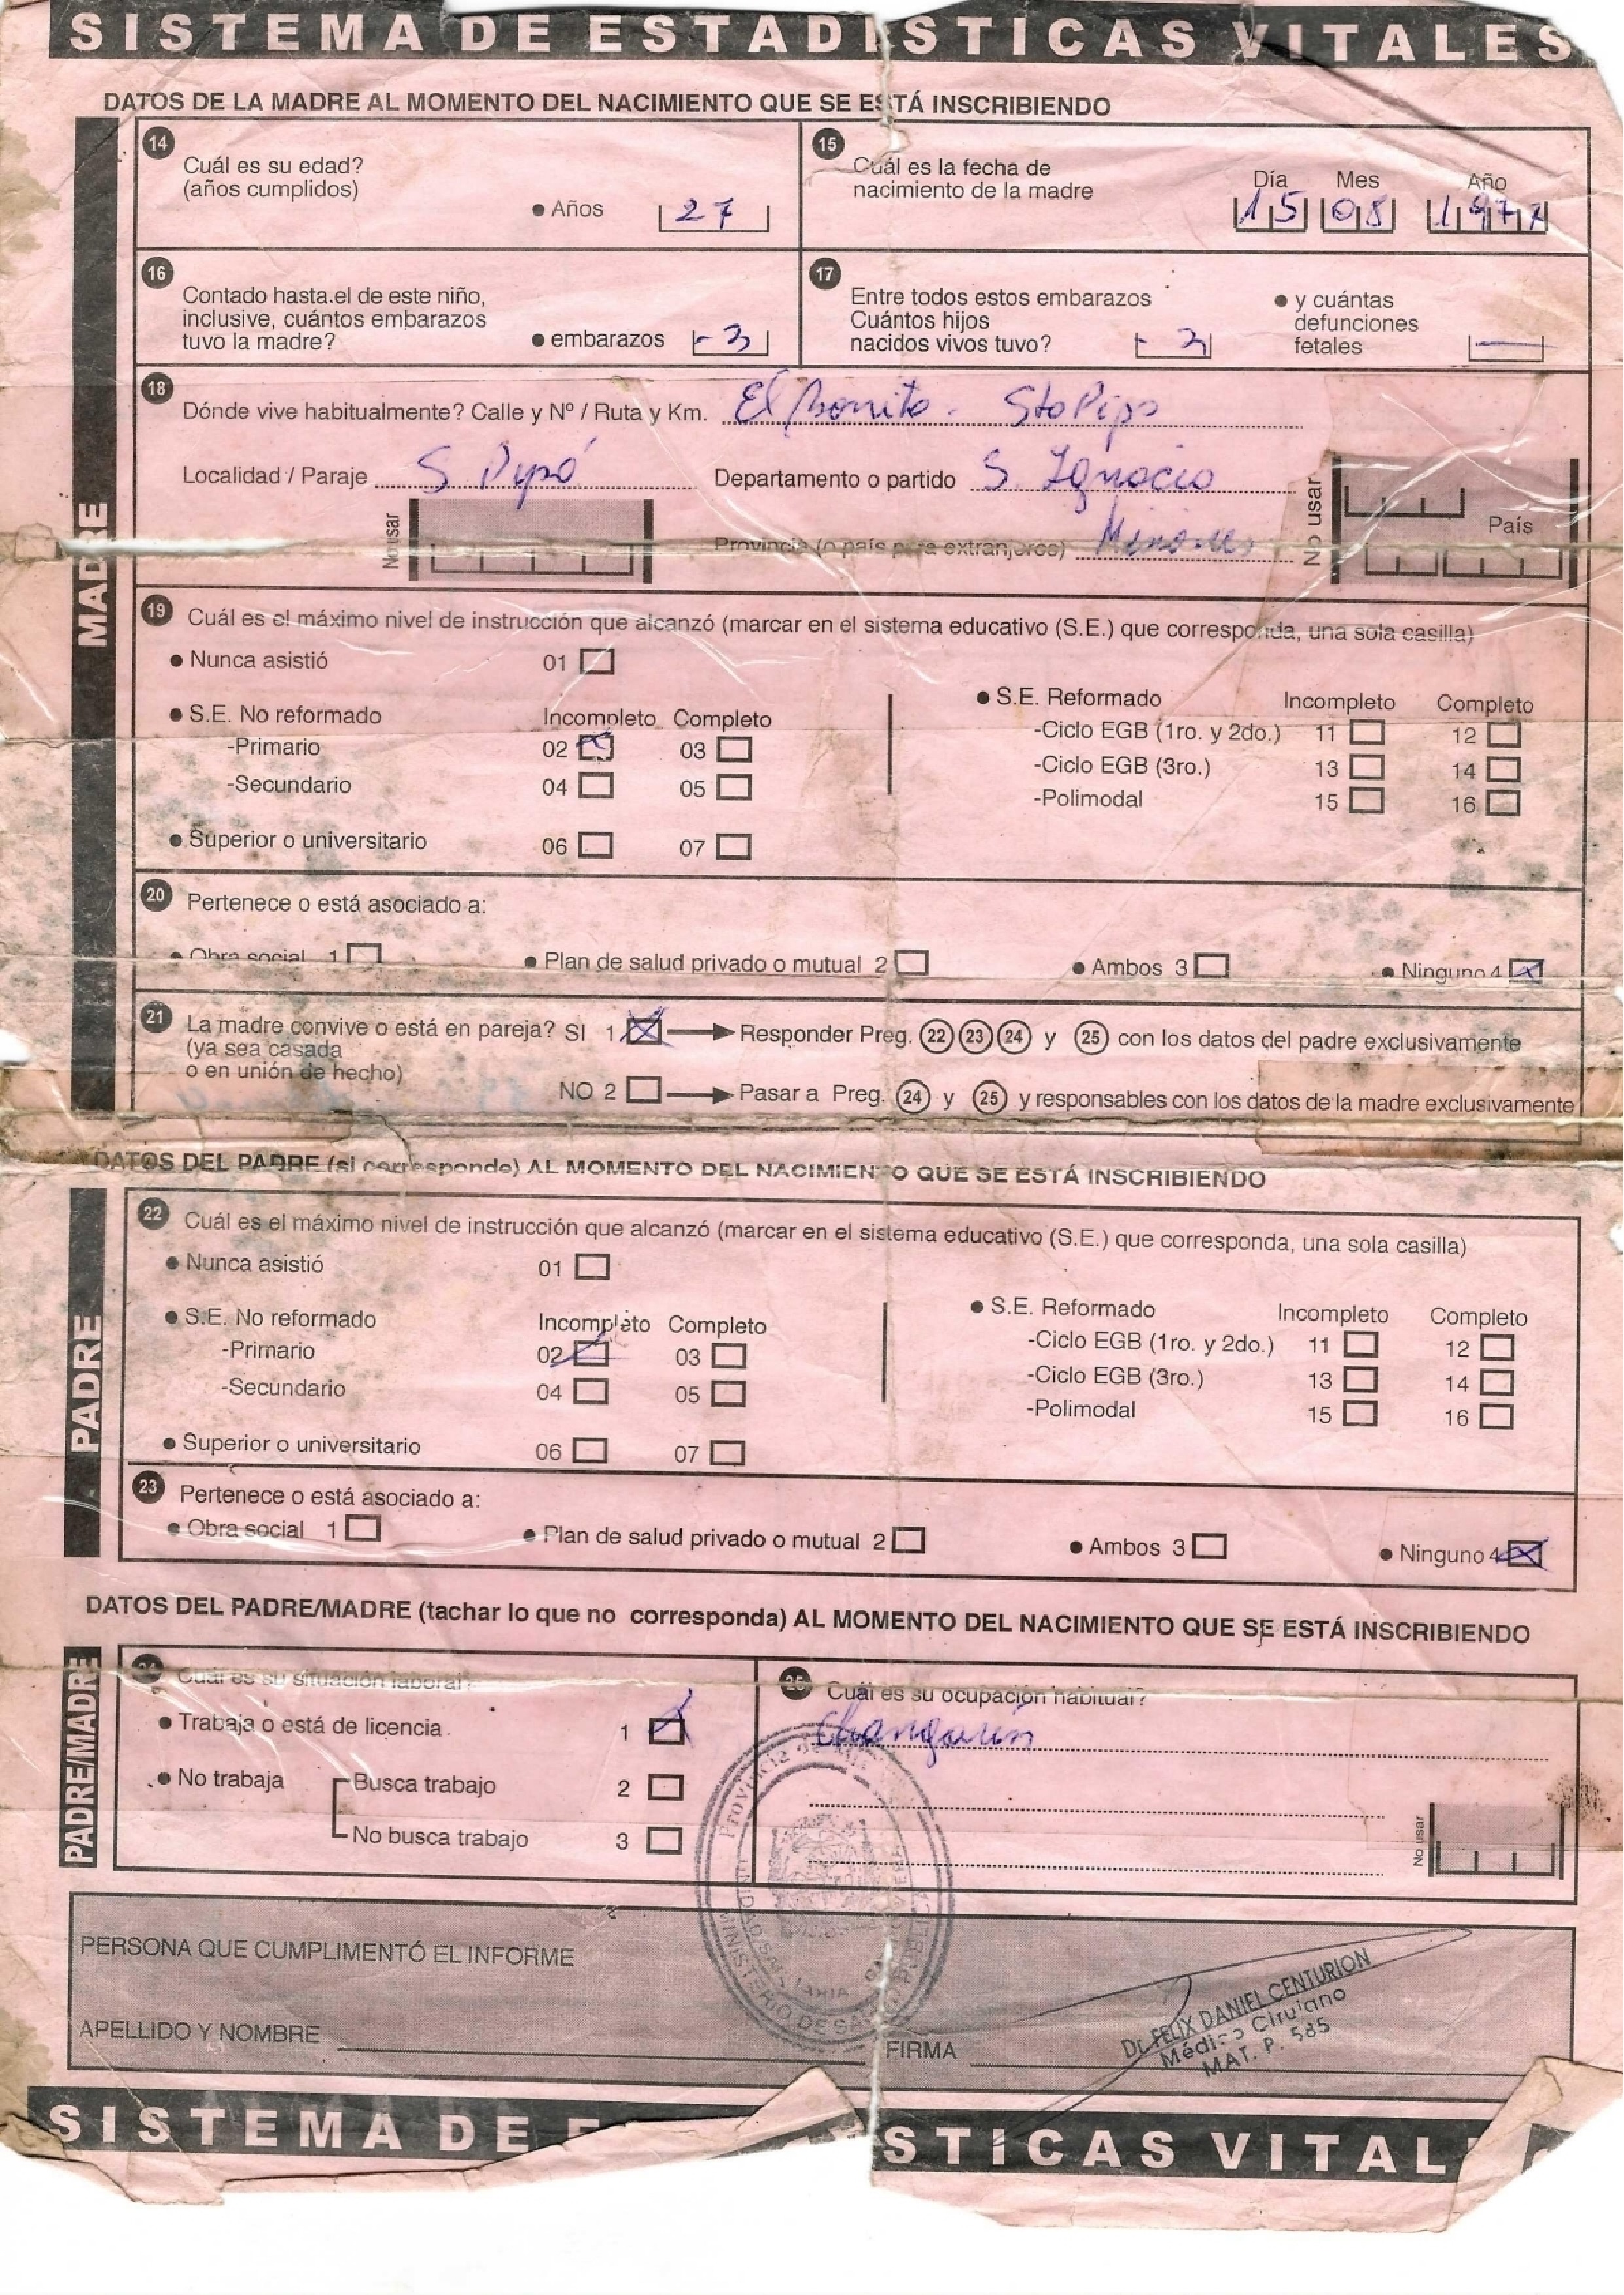 SISTEMA DE ESTADISTICAS VITALES
DATOS DE LA MADRE AL MOMENTO DEL NACIMIENTO QUE SE ESTÁ INSCRIBIENDO
MADRE
14
Cuál es su edad?
(años cumplidos)
• Años 27
15
Cuál es la fecha de
nacimiento de la madre
Día Mes Año
15 08 1977
16
Contado hasta el de este niño,
inclusive, cuántos embarazos
tuvo la madre? • embarazos - 3
17
Entre todos estos embarazos
Cuántos hijos
nacidos vivos tuvo? - 3
• y cuántas
defunciones
fetales —
18
Dónde vive habitualmente? Calle y Nº / Ruta y Km. El Bonito - Sto Pipo
Localidad / Paraje S Pipó Departamento o partido S. Ignacio
No usar
Provincia (o país para extranjeros) Misiones
No usar
País
19 Cuál es el máximo nivel de instrucción que alcanzó (marcar en el sistema educativo (S.E.) que corresponda, una sola casilla)
• Nunca asistió 01
• S.E. No reformado Incompleto Completo
-Primario 02 X 03
-Secundario 04 05
• Superior o universitario 06 07
• S.E. Reformado Incompleto Completo
-Ciclo EGB (1ro. y 2do.) 11 12
-Ciclo EGB (3ro.) 13 14
-Polimodal 15 16
20 Pertenece o está asociado a:
• Obra social 1 • Plan de salud privado o mutual 2 • Ambos 3 • Ninguno 4 X
21 La madre convive o está en pareja? SI 1 X → Responder Preg. 22 23 24 y 25 con los datos del padre exclusivamente
(ya sea casada
o en unión de hecho)
NO 2 → Pasar a Preg. 24 y 25 y responsables con los datos de la madre exclusivamente
DATOS DEL PADRE (si corresponde) AL MOMENTO DEL NACIMIENTO QUE SE ESTÁ INSCRIBIENDO
PADRE
22 Cuál es el máximo nivel de instrucción que alcanzó (marcar en el sistema educativo (S.E.) que corresponda, una sola casilla)
• Nunca asistió 01
• S.E. No reformado Incompleto Completo
-Primario 02 X 03
-Secundario 04 05
• Superior o universitario 06 07
• S.E. Reformado Incompleto Completo
-Ciclo EGB (1ro. y 2do.) 11 12
-Ciclo EGB (3ro.) 13 14
-Polimodal 15 16
23 Pertenece o está asociado a:
• Obra social 1 • Plan de salud privado o mutual 2 • Ambos 3 • Ninguno 4 X
DATOS DEL PADRE/MADRE (tachar lo que no corresponda) AL MOMENTO DEL NACIMIENTO QUE SE ESTÁ INSCRIBIENDO
PADRE/MADRE
24 Cuál es su situación laboral?
• Trabaja o está de licencia 1 X
• No trabaja Busca trabajo 2
No busca trabajo 3
25 Cuál es su ocupación habitual?
Changarín
No usar
Provincia de
MINISTERIO DE
PERSONA QUE CUMPLIMENTÓ EL INFORME
APELLIDO Y NOMBRE
FIRMA
Dr. FELIX DANIEL CENTURION
Médico Cirujano
MAT. P. 585
SISTEMA DE E STICAS VITAL